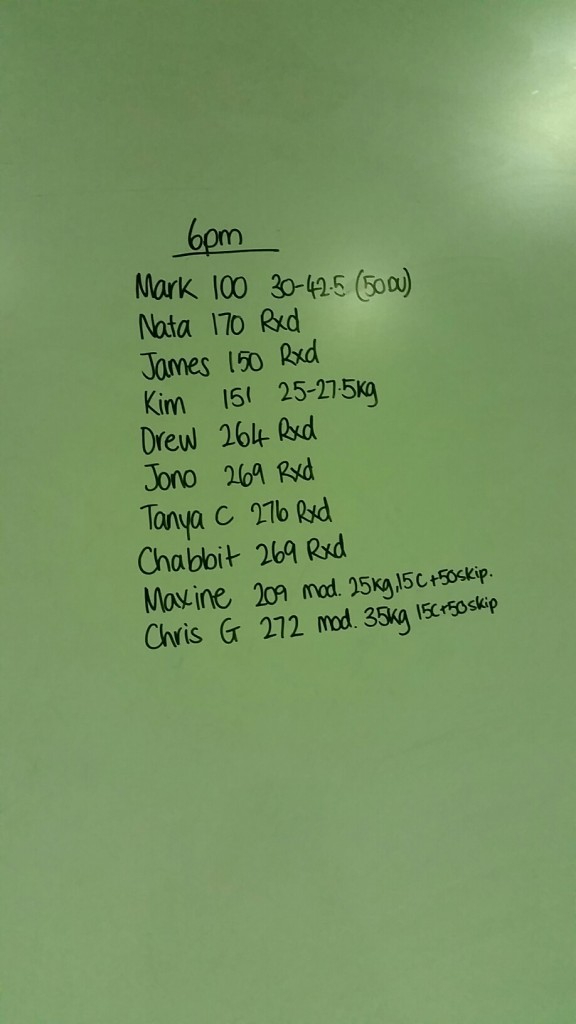 6pm
Mark 100 30-42.5 (50DU)
Nata 170 Rxd
James 150 Rxd
Kim 151 25-27.5kg
Drew 264 Rxd
Jono 269 Rxd
Tanya C 276 Rxd
Chabbit 269 Rxd
Maxine 209 mod. 25kg,15C+50skip.
Chris G 272 mod. 35kg 15C+50skip